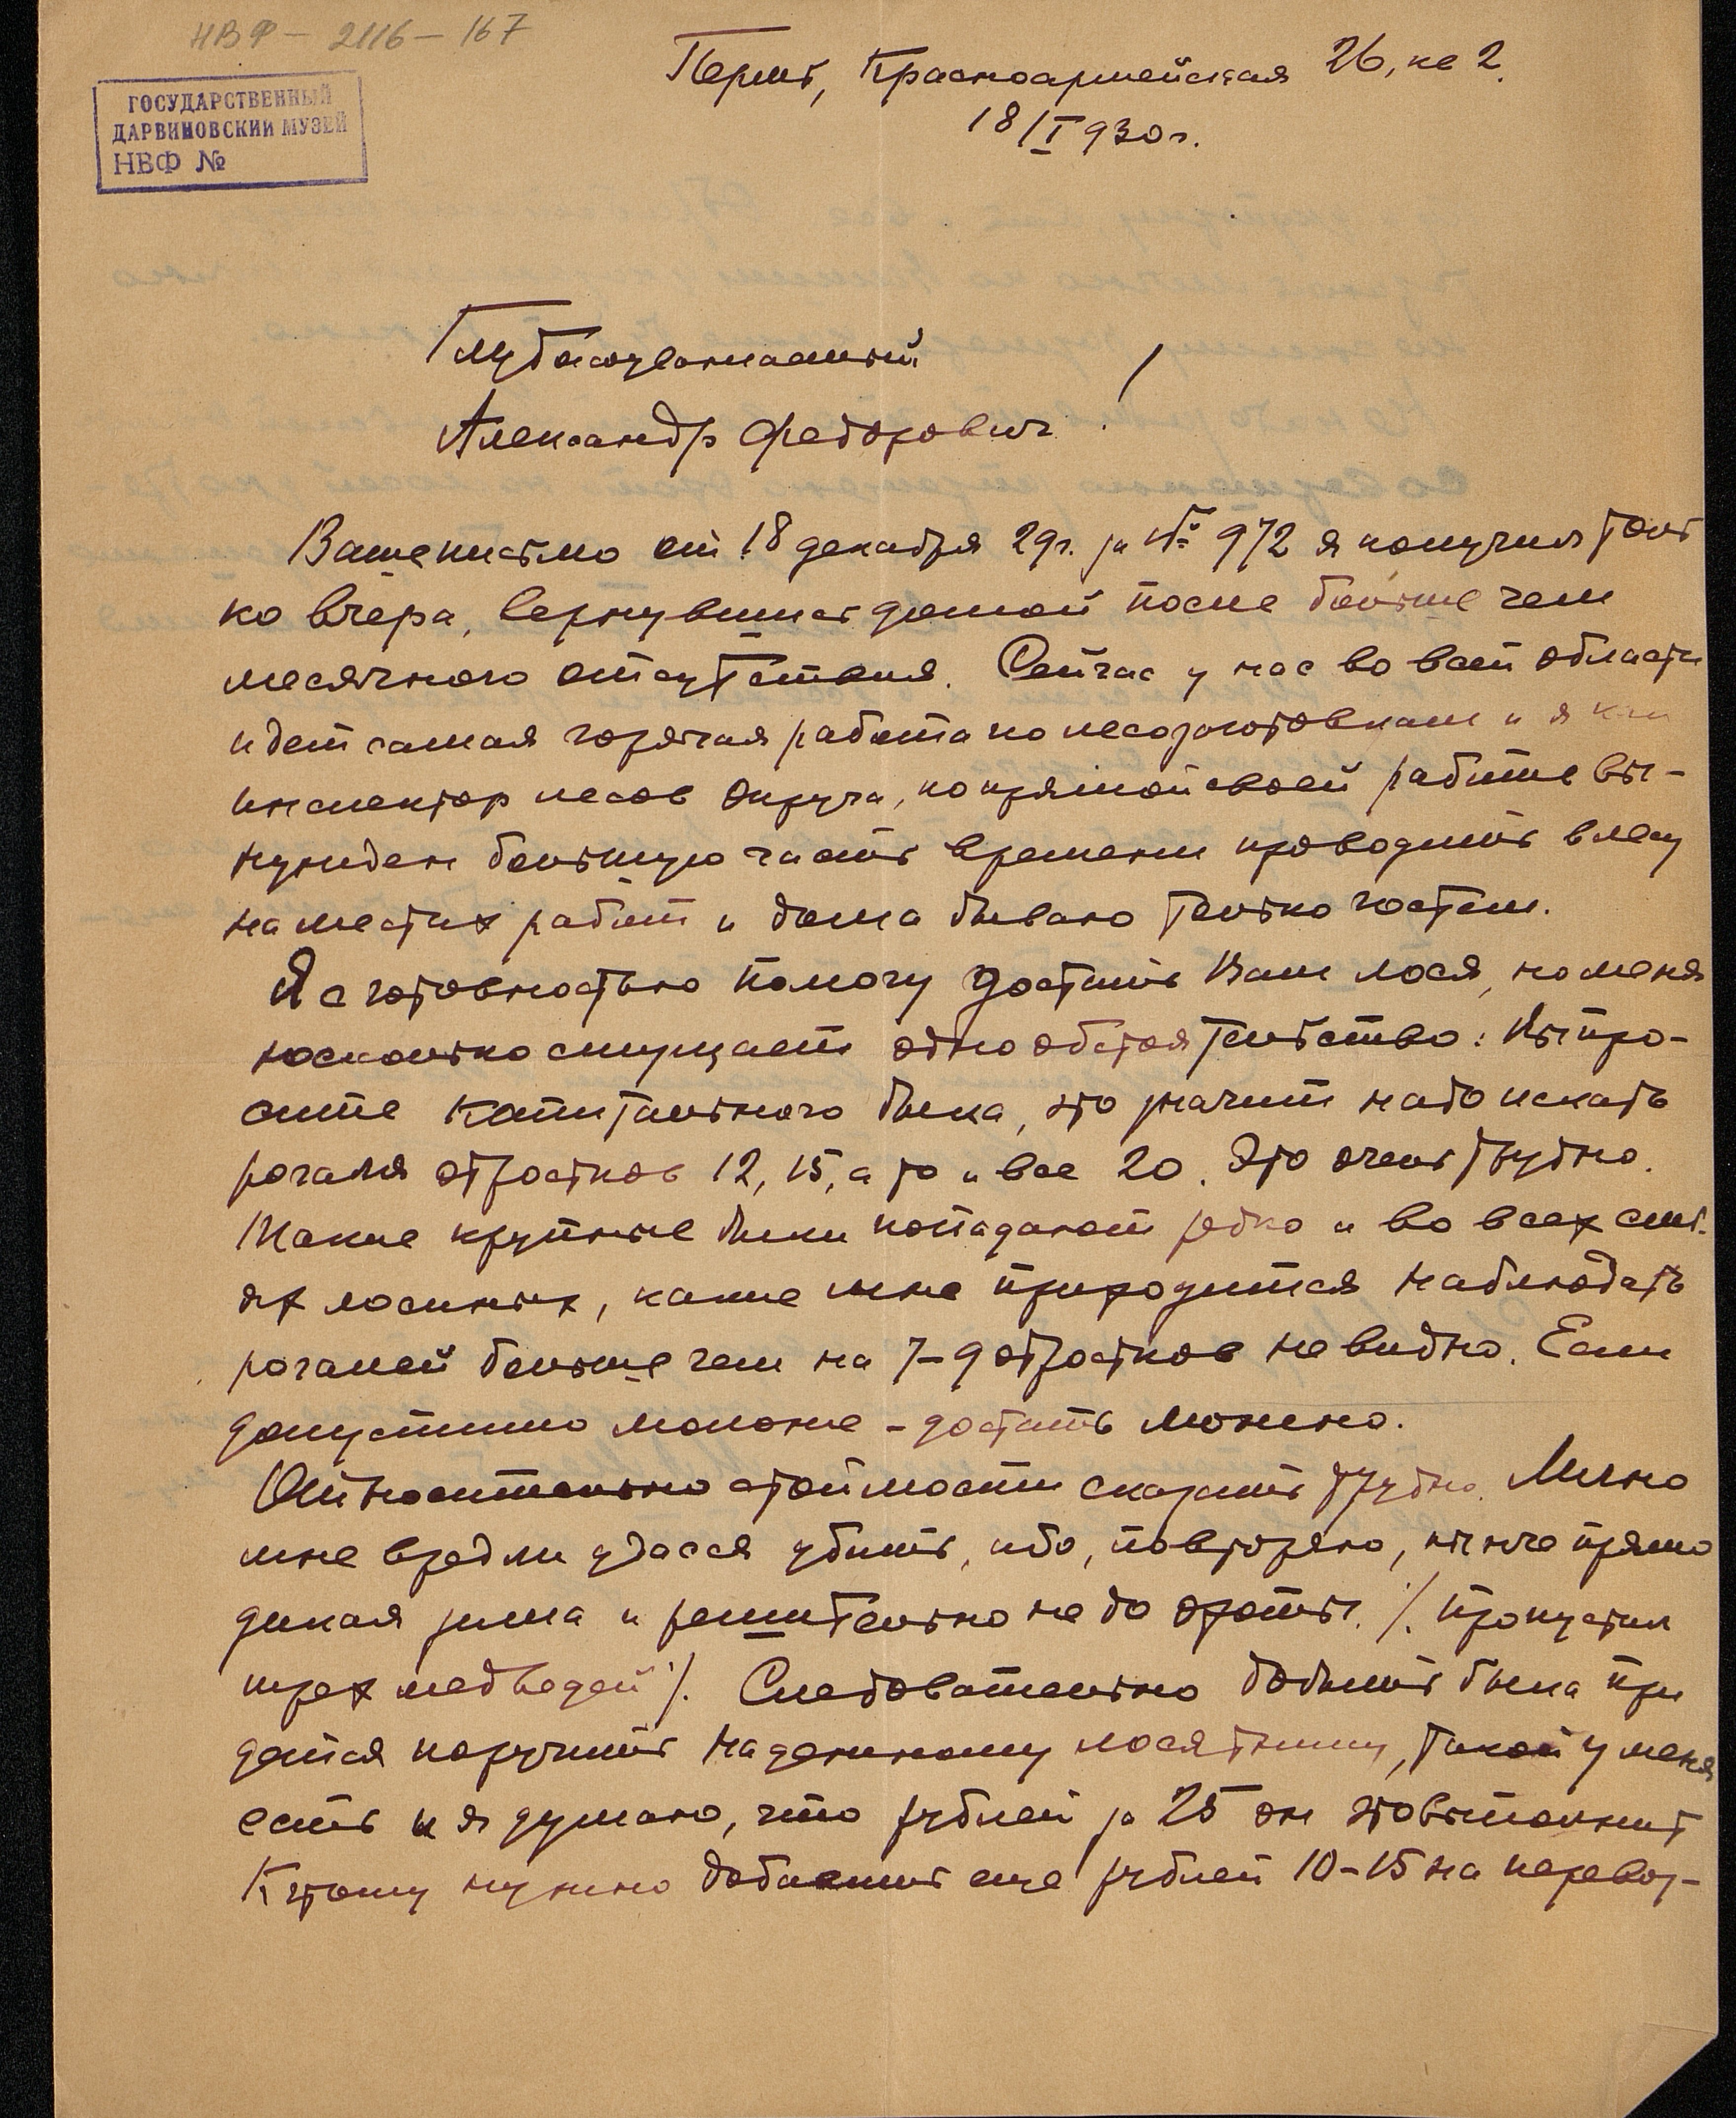 НВФ – 2116 – 167
ГОСУДАРСТВЕННЫЙ
ДАРВИНОВСКИЙ МУЗЕЙ
НВФ №
Пермь, Красноармейская 26, кв 2.
18/I 930 г.
Глубокоуважаемый
Александр Федорович!
Ваше письмо от 18 декабря 29 г. за № 972 я получил толь
ко вчера, вернувшись домой после больше чем
месячного отсутствия. Сейчас у нас во всей области
идет самая горячая работа по лесозаготовкам и я как
инспектор лесов округа, по прямой своей работе вы-
нужден большую часть времени проводить в лесу
на местах работ и дома бываю только гостем.
Я с готовностью помогу достать Вам лося, но меня
несколько смущает одно обстоятельство: Вы про-
сите капитального быка, это значит надо искать
рогаля отростков 12, 15, а то и все 20. Это очень трудно.
Такие крупные быки попадают редко и во всех
лосиных, какие мне приходится наблюдать
рогалей больше чем на 7–9 отростков не видно. Если
допустимо моложе – достать можно.
Относительно стоимости сказать трудно. Лично
мне вредли удасся убить, ибо, повторяю, нынче прямо
дикая зима и решительно не до охоты. /. пропустил
трех медведей /. Следовательно добыть быка при
дется поручить надежному лосятнику, такой у меня
есть и я думаю, что рублей за 25 он это выполнит
К этому нужно добавить еще рублей 10–15 на перевоз-